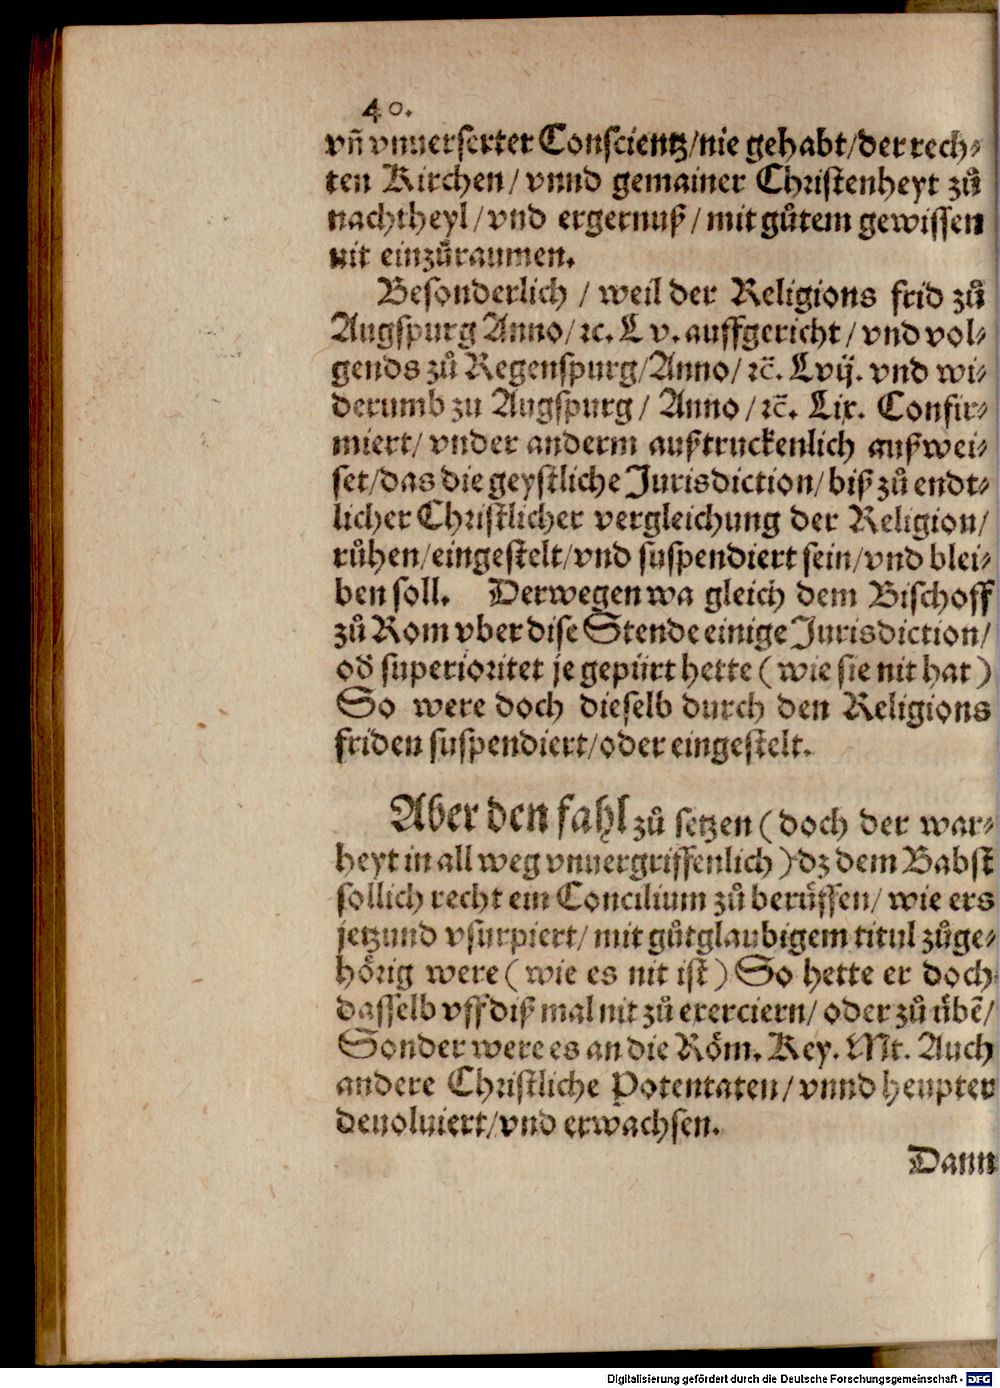 40.
vñ vnuerserter Conscientz/nie gehabt/der rech⸗
ten Kirchen/ vnnd gemainer Christenheyt zů
nachtheyl/vnd ergernuß/mit gůtem gewissen
nit einzůraumen.
Besonderlich / weil der Religions frid zů
Augspurg Anno/ꝛc. Lv. auffgericht/vnd vol⸗
gends zů Regenspurg/Anno/ꝛc̄. Lvij. vnd wi⸗
derumb zu Augspurg/ Anno/ꝛc̄. Lix. Confir⸗
miert/vnder anderm außtruckenlich außwei⸗
set/das die geystliche Jurisdiction/biß zů endt⸗
licher Christlicher vergleichung der Religion/
růhen/eingestelt/vnd suspendiert sein/vnd blei⸗
ben soll. Derwegen wa gleich dem Bischoff
zů Rom vber dise Stende einige Jurisdiction/
oď superioritet je gepürt hette (wie sie nit hat)
So were doch dieselb durch den Religions
friden suspendiert/oder eingestelt.
Aber den fahl zů setzen (doch der war⸗
heyt in all weg vnuergriffenlich) dz dem Babst
sollich recht ein Concilium zů berůffen/ wie ers
jetzund vsurpiert/mit gůtglaubigem titul zůge⸗
hörig were (wie es nit ist) So hette er doch
dasselb vff diß mal nit zů exerciern/ oder zů übē/
Sonder were es an die Röm. Key. Mt. Auch
andere Christliche Potentaten/vnnd heupter
deuoluiert/vnd erwachsen.
Dann
Digitalisierung gefördert durch die Deutsche Forschungsgemeinschaft - DFG